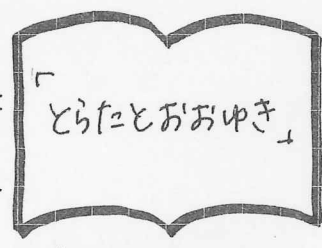 「とらたとおおゆき」